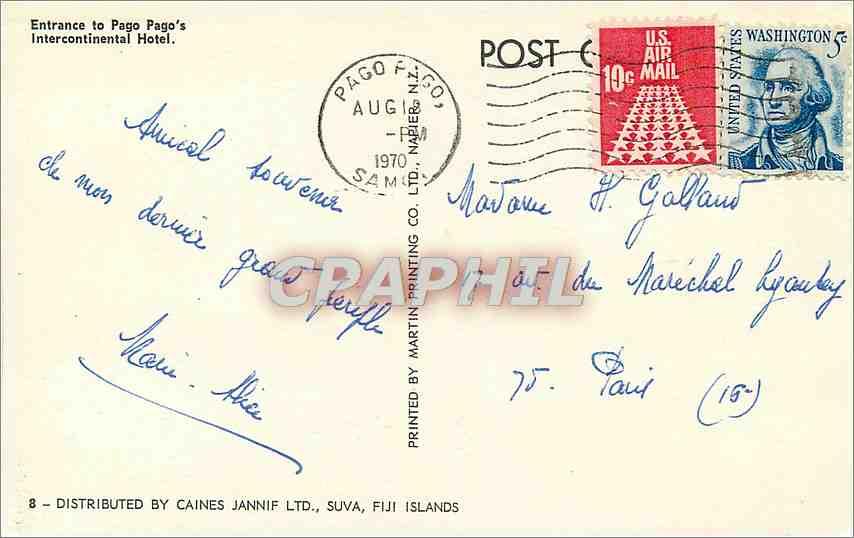 Entrance to Pago Pago's
Intercontinental Hotel.
POST C
PAGO PAGO,
AUG 1
-PM
1970
SAMOA
U.S.
AIR
MAIL
10c
UNITED STATES
WASHINGTON 5c
Amical souvenir
de mon dernier
grand périple
Marie-Alice
PRINTED BY MARTIN PRINTING CO. LTD., NAPIER, N.Z.
Madame H. Galland
av. du Maréchal Lyautey
75. Paris (16e)
CPAPHIL
8 – DISTRIBUTED BY CAINES JANNIF LTD., SUVA, FIJI ISLANDS